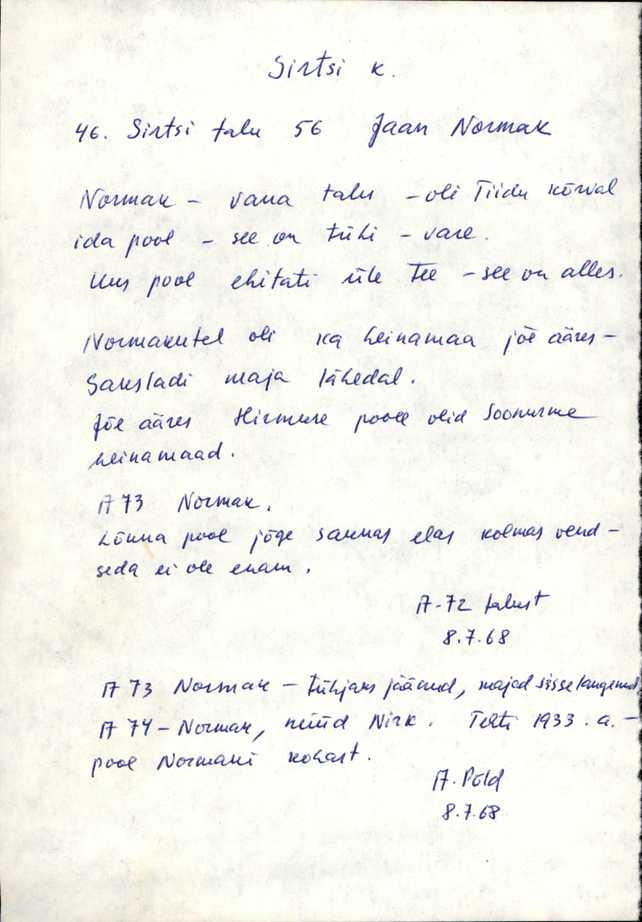 Sirtsi k.
46. Sirtsi talu 56 Jaan Normak
Normak - vana talu - oli Tiidu kõrval
ida pool - see on tühi - vare.
Uus pool ehitati üle tee - see on alles.
Normakutel oli ka heinamaa jõe ääres -
maja lähedal.
Jõe ääres Hirmuse poole olid Soonurme
heinamaad.
A 73 Normak.
Lõuna pool jõge saunas elas kolmas vend -
seda ei ole enam.
A-72 talust
8.7.68
A 73 Normak - tühjaks jäänud, majad sisse langenud
A 74 - Normak, nüüd Nirk. Tehti 1933. a. -
pool Normaku kohast.
A. Põld
8.7.68